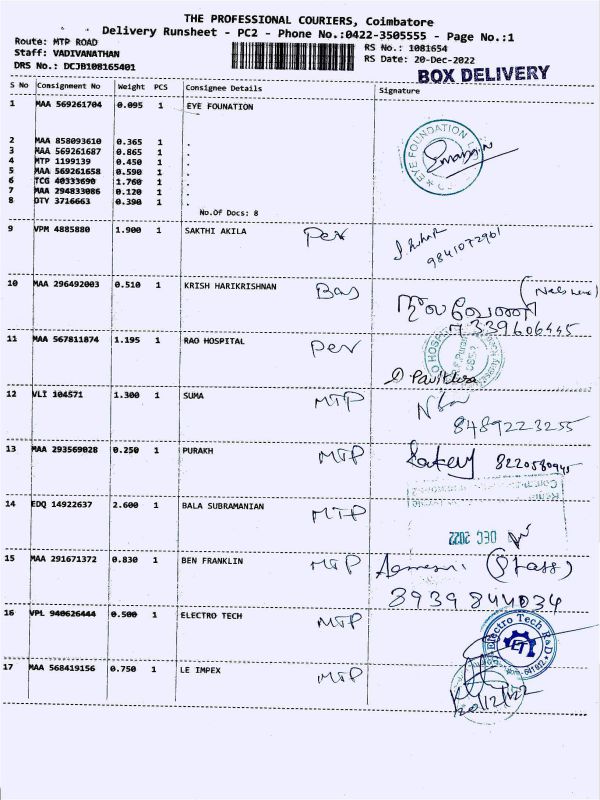 THE PROFESSIONAL COURIERS, Coimbatore
Delivery Runsheet - PC2 - Phone No.:0422-3505555 - Page No.:1
Route: MTP ROAD
RS No.: 1081654
Staff: VADIVANATHAN
RS Date: 20-Dec-2022
DRS No.: DCJB108165401
BOX DELIVERY
S No Consignment No Weight PCS Consignee Details Signature
1 MAA 569261704 0.095 1 EYE FOUNATION
EYE FOUNDATION
2 MAA 858093610 0.365 1 .
3 MAA 569261687 0.865 1 .
4 MTP 1199139 0.450 1 .
5 MAA 569261658 0.590 1 .
6 TCG 40333690 1.760 1 .
7 MAA 294833086 0.120 1 .
8 OTY 3716663 0.390 1 .
No.Of Docs: 8
9 VPM 4885880 1.900 1 SAKTHI AKILA Per
9841072961
10 MAA 296492003 0.510 1 KRISH HARIKRISHNAN
7339606445
11 MAA 567811874 1.195 1 RAO HOSPITAL Per
12 VLI 104571 1.300 1 SUMA MTP
8489223255
13 MAA 293569028 0.250 1 PURAKH MTP 8220580945
14 EDQ 14922637 2.600 1 BALA SUBRAMANIAN MTP
DEC 2022
15 MAA 291671372 0.830 1 BEN FRANKLIN MTP
8939844034
16 VPL 940626444 0.500 1 ELECTRO TECH MTP
Electro Tech R&D
ET
17 MAA 568419156 0.750 1 LE IMPEX MTP
20/12/22